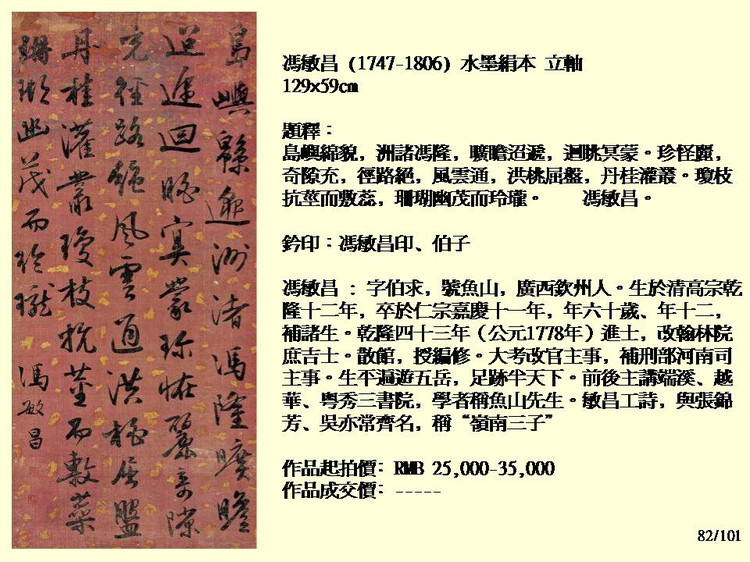 島嶼緜邈洲渚馮隆曠瞻
迢遞迴眺冥蒙珍怪麗奇隙
充徑路絕風雲通洪桃屈盤
丹桂灌叢瓊枝抗莖而敷蕊
珊瑚幽茂而玲瓏 馮敏昌
馮敏昌 (1747-1806) 水墨絹本 立軸
129x59cm
題釋：
島嶼綿貌，洲諸馮隆，曠瞻迢遞，迴眺冥蒙。珍怪麗，
奇隙充，徑路絕，風雲通，洪桃屈盤，丹桂灌叢。瓊枝
抗莖而敷蕊，珊瑚幽茂而玲瓏。 馮敏昌。
鈐印：馮敏昌印、伯子
馮敏昌 : 字伯求，號魚山，廣西欽州人。生於清高宗乾
隆十二年，卒於仁宗嘉慶十一年，年六十歲、年十二，
補諸生。乾隆四十三年（公元1778年）進士，改翰林院
庶吉士。散館，授編修。大考改官主事，補刑部河南司
主事。生平遍遊五岳，足跡半天下。前後主講端溪、越
華、粵秀三書院，學者稱魚山先生。敏昌工詩，與張錦
芳、吳亦常齊名，稱“嶺南三子”
作品起拍價: RMB 25,000-35,000
作品成交價: -----
82/101